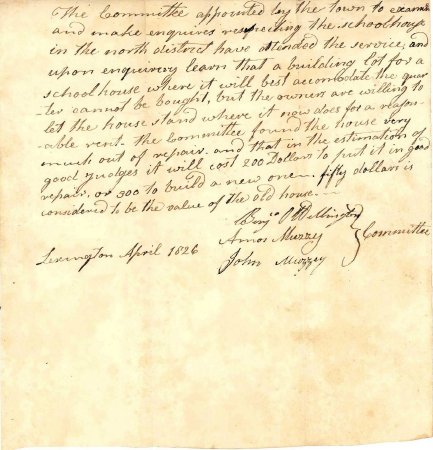 The Committee appointed by the town to examin
and make enquires respecting the schoolhouse
in the north district have attended the service, and
upon enquirery learn that a building lot for a
schoolhouse where it will best accomodate the quar-
ter cannot be bought, but the owner are willing to
let the house stand where it now does for a reason-
able rent. the Committee found the house very
much out of repair. and that in the estimation of
good judges it will cost 200 Dollars to put it in good
repair. or 300 to build a new one. fifty dollars is
considered to be the value of the old house.
Benjo Wellington
Amos Muzzy
John Muzzey
Committee
Lexington April 1826